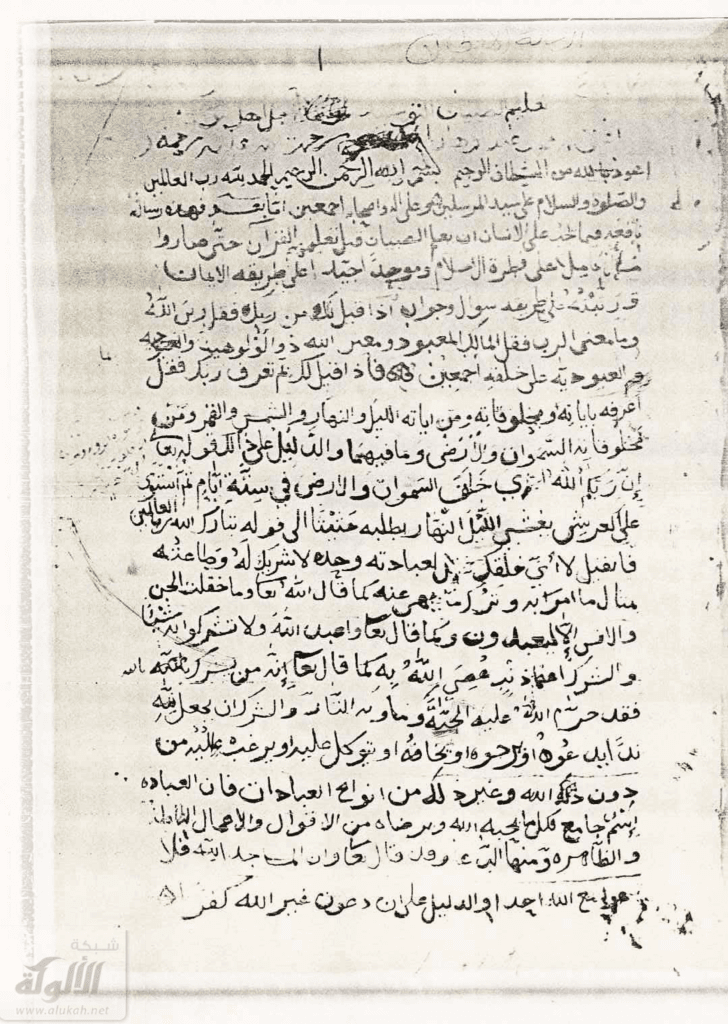 اعوذ بالله من الشيطان الرجيم بسم الله الرحمن الرحيم الحمد لله رب العالمين
والصلوة والسلام على سيد المرسلين محمد وعلى اله واصحابه اجمعين اما بعد فهذه رسالة
نافعة فيما يجب على الانسان ان يعلم الصبيان قبل تعلمهم القران حتى صاروا
على فطرة الاسلام وموحدا جيدا على طريقة الايمان
على طريقة سوال وجواب اذا قيل لك من ربك فقل ربي الله
وما معنى الرب فقل المالك المعبود ومعنى الله ذو الالوهية والعبودية
على خلقه اجمعين فاذا قيل لك بم تعرف ربك فقل
اعرفه باياته ومخلوقاته ومن اياته الليل والنهار والشمس والقمر ومن
مخلوقاته السموات والارض وما فيهما والدليل على ذلك قوله تعالى
ان ربكم الله الذي خلق السموات والارض في ستة ايام ثم استوى
على العرش يغشى الليل النهار يطلبه حثيثا الى قوله تبارك الله رب العالمين
فان قيل لاي خلقك قل لعبادته وحده لا شريك له وطاعته
بامتثال ما امر به وترك ما نهى عنه كما قال الله تعا وما خلقت الجن
والانس الا ليعبدون وكما قال تعا واعبدوا الله ولا تشركوا به شيئا
والشرك اعظم ذنب عصي الله به كما قال تعا انه من يشرك بالله
بالله
فقد حرم الله عليه الجنة وماويه النار والشرك ان يجعل لله
ندا يدعوه او يرجوه او يخافه او يتوكل عليه او يرغب اليه من
دون الله وغير ذلك من انواع العبادات فان العبادة
اسم جامع لكل ما يحبه الله ويرضاه من الاقوال والاعمال الباطنة
والظاهرة ومنها الدعاء وقد قال تعا وان المساجد لله فلا
تدعوا مع الله احدا والدليل على ان دعوت غير الله كفر
شبكة
الألوكة
www.alukah.net